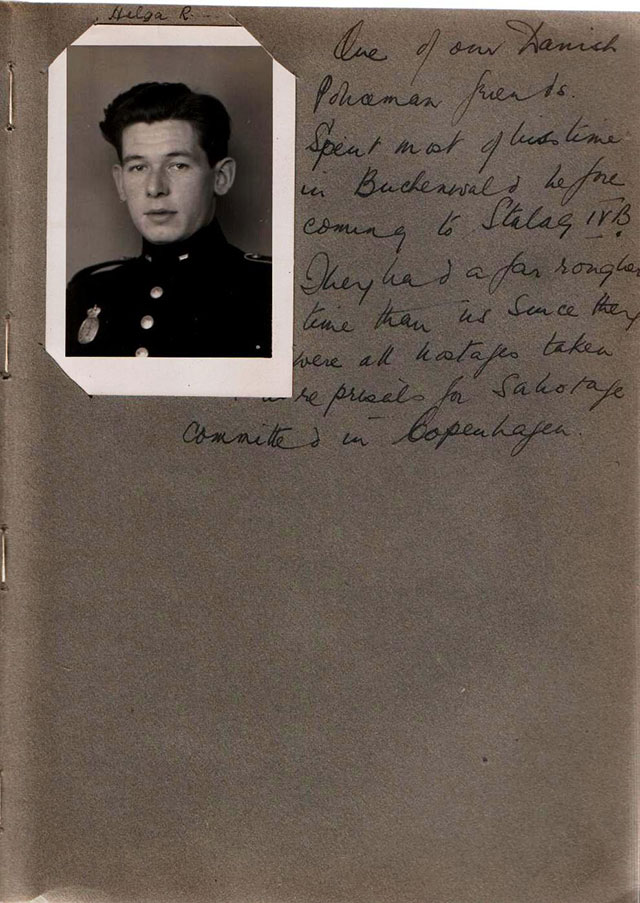 Helga R.
One of our Danish
Policeman friends.
Spent most of his time
in Buchenwald before
coming to Stalag IVB.
They had a far rougher
time than us since they
were all hostages taken
in reprisals for Sabotage
committed in Copenhagen.